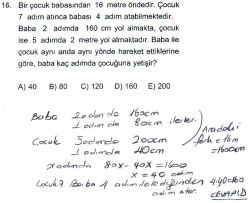 16. Bir çocuk babasından 16 metre öndedir. Çocuk
7 adım atınca babası 4 adım atabilmektedir.
Baba 2 adımda 160 cm yol almakta, çocuk
ise 5 adımda 2 metre yol almaktadır. Baba ile
çocuk aynı anda aynı yönde hareket ettiklerine
göre, baba kaç adımda çocuğuna yetişir?
A) 40 B) 80 C) 120 D) 160 E) 200
Baba 2 adımda 160cm
1 adımda 80cm ilerler.
Aradaki
fark=16m
=1600cm
Çocuk 5 adımda 200cm
1 adımda 40cm
x adımda 80x-40x=1600
x=40 adım
Çocuk 7 Baba 4 adım 4.40=160
adım atar.
CEVAP D